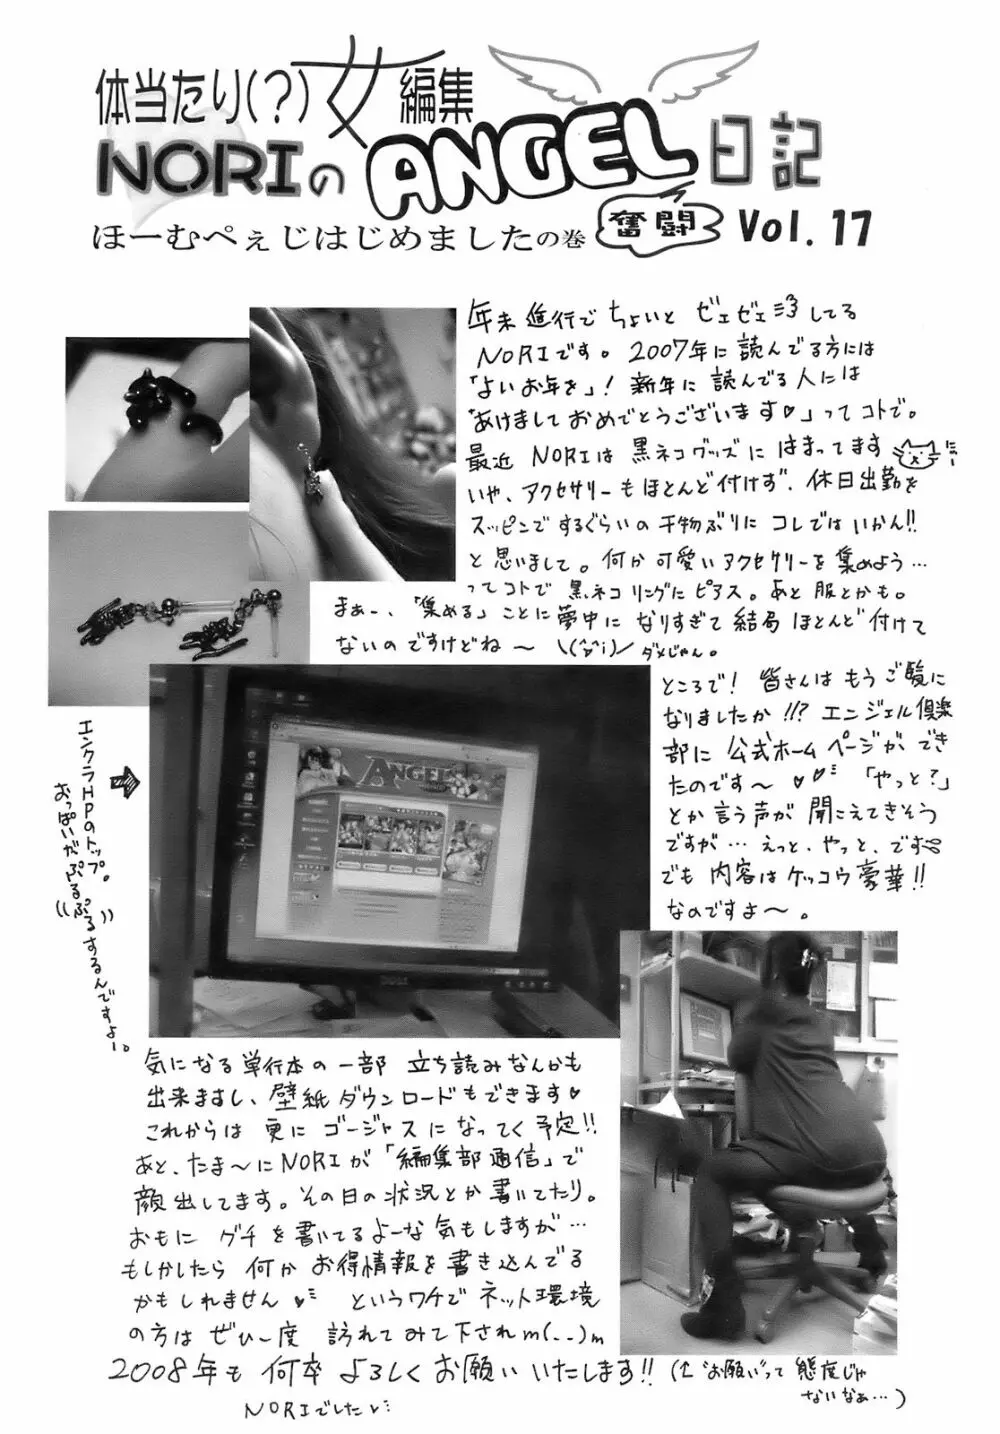 体当たり(?)女編集
NORIの ANGEL 日記
奮闘
ほーむぺぇじはじめましたの巻
Vol. 17
年末進行で ちょいと ゼェゼェしてる
NORIです。2007年に 読んでる方には
「よいお年を」! 新年に 読んでる人には
「あけましておめでとうございます♡」ってコトで。
最近 NORIは 黒ネコグッズに はまってます
いや、アクセサリーもほとんど付けず、休日出勤を
スッピンでするぐらいの干物ぶりに コレではいかん!!
と思いまして。何か可愛いアクセサリーを集めよう…
ってコトで 黒ネコリングにピアス。あと服とかも。
まぁー、「集める」ことに夢中になりすぎて結局ほとんど付けて
ないのですけどね〜 ダメじゃん。
ところで! 皆さんは もうご覧に
なりましたか!!? エンジェル倶楽
部に 公式ホームページができ
たのです〜♡♡ 「やっと?」
とか言う声が 聞こえてきそう
ですが… えっと、やっと、です
でも 内容はケッコウ豪華!!
なのですよ〜。
エンクラHPのトップ。
おっぱいがぷるぷるするんですよー。
ANGEL
DELL
気になる単行本の一部 立ち読みなんかも
出来ますし、壁紙ダウンロードもできます♡
これからは 更に ゴージャスになってく予定!!
あと、たま〜にNORIが「編集部通信」で
顔出してます。その日の状況とか書いてたり。
おもに グチを書いてるよーな気もしますが…
もしかしたら 何か お得情報を書き込んでる
かもしれません♡ というワケで ネット環境
の方は ぜひ一度 訪れてみて下されm(_ _)m
2008年も 何卒 よろしくお願いいたします!! (↑“お願い”って 態度じゃ
ないなぁ…)
NORIでした